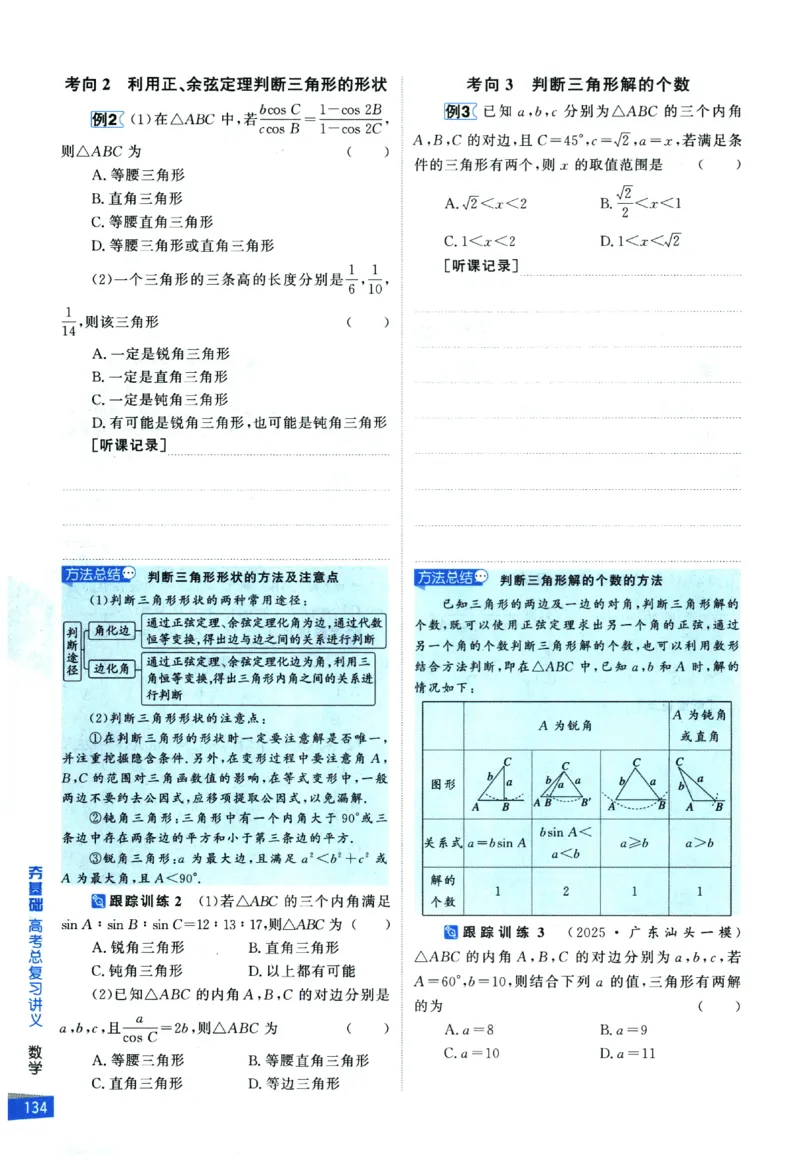 考向 2 利用正、余弦定理判断三角形的形状
例2 (1)在△ABC 中,若 bcos C/ccos B = 1-cos 2B/1-cos 2C,
则△ABC 为 ( )
A.等腰三角形
B.直角三角形
C.等腰直角三角形
D.等腰三角形或直角三角形
(2)一个三角形的三条高的长度分别是 1/6, 1/10,
1/14,则该三角形 ( )
A.一定是锐角三角形
B.一定是直角三角形
C.一定是钝角三角形
D.有可能是锐角三角形,也可能是钝角三角形
[听课记录]
方法总结 判断三角形形状的方法及注意点
(1)判断三角形形状的两种常用途径:
判断途径
角化边
通过正弦定理、余弦定理化角为边,通过代数
恒等变换,得出边与边之间的关系进行判断
边化角
通过正弦定理、余弦定理化边为角,利用三
角恒等变换,得出三角形内角之间的关系进
行判断
(2)判断三角形形状的注意点:
①在判断三角形的形状时一定要注意解是否唯一,
并注重挖掘隐含条件.另外,在变形过程中要注意角 A,
B,C 的范围对三角函数值的影响,在等式变形中,一般
两边不要约去公因式,应移项提取公因式,以免漏解.
②钝角三角形:三角形中有一个内角大于 90°或三
条边中存在两条边的平方和小于第三条边的平方.
③锐角三角形:a 为最大边,且满足 a²<b²+c² 或
A 为最大角,且 A<90°.
跟踪训练 2 (1)若△ABC 的三个内角满足
sin A∶sin B∶sin C=12∶13∶17,则△ABC 为 ( )
A.锐角三角形 B.直角三角形
C.钝角三角形 D.以上都有可能
(2)已知△ABC 的内角 A,B,C 的对边分别是
a,b,c,且 a/cos C =2b,则△ABC 为 ( )
A.等腰三角形 B.等腰直角三角形
C.直角三角形 D.等边三角形
考向 3 判断三角形解的个数
例3 已知 a,b,c 分别为△ABC 的三个内角
A,B,C 的对边,且 C=45°,c=√2,a=x,若满足条
件的三角形有两个,则 x 的取值范围是 ( )
A.√2<x<2 B.√2/2<x<1
C.1<x<2 D.1<x<√2
[听课记录]
方法总结 判断三角形解的个数的方法
已知三角形的两边及一边的对角,判断三角形解的
个数,既可以使用正弦定理求出另一个角的正弦,通过
另一个角的个数判断三角形解的个数,也可以利用数形
结合方法判断,即在△ABC 中,已知 a,b 和 A 时,解的
情况如下:
A 为锐角
A 为钝角
或直角
图形
C b a A B
C b a a A B B′
C b a A B
C b a A B
关系式 a=bsin A bsin A<a<b a≥b a>b
解的个数 1 2 1 1
跟踪训练 3 (2025·广东汕头一模)
△ABC 的内角 A,B,C 的对边分别为 a,b,c,若
A=60°,b=10,则结合下列 a 的值,三角形有两解
的为 ( )
A.a=8 B.a=9
C.a=10 D.a=11
夯基础 高考总复习讲义 数学
134